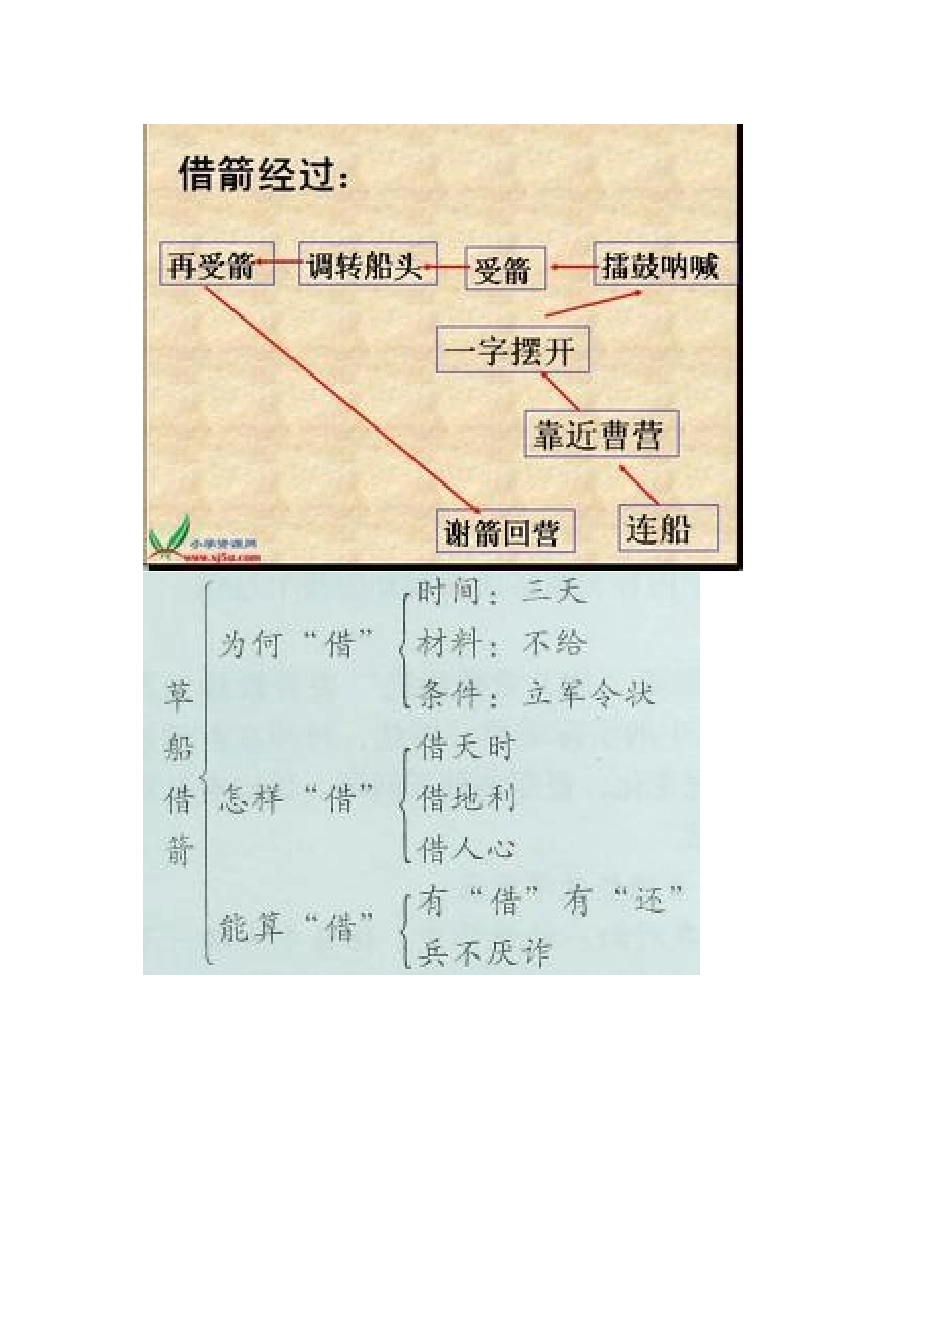 借箭经过：
再受箭
调转船头
受箭
擂鼓呐喊
一字摆开
靠近曹营
谢箭回营
连船
小学资源网
www.xj5u.com
草船借箭
为何“借”
时间：三天
材料：不给
条件：立军令状
怎样“借”
借天时
借地利
借人心
能算“借”
有“借”有“还”
兵不厌诈